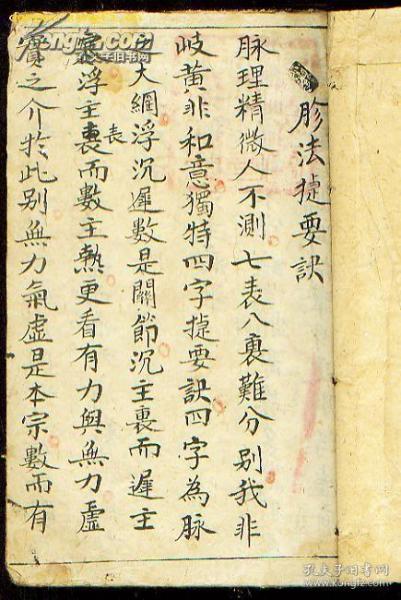 胗法捷要訣
脉理精微人不測七表八裏難分别我非
岐黄非和意獨特四字捷要訣四字為脉
之大綱浮沉遲數是關節沉主裏而遲主
寒浮主裏表而數主熱更看有力與無力虛
實之介扵此别無力氣虛是本宗數而有
孔夫子旧书网
www.kongfz.com